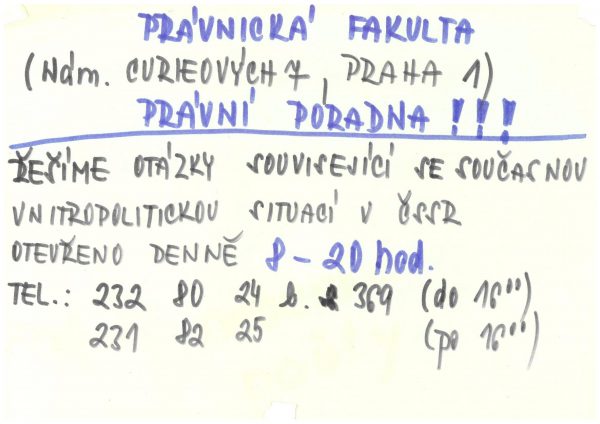 PRÁVNICKÁ FAKULTA
(NÁM. CURIEOVÝCH 7, PRAHA 1)
PRÁVNÍ PORADNA !!!
ŘEŠÍME OTÁZKY SOUVISEJÍCÍ SE SOUČASNOU
VNITROPOLITICKOU SITUACÍ V ČSSR
OTEVŘENO DENNĚ 8 – 20 hod.
TEL.: 232 80 24 l. 369 (do 16⁰⁰)
231 82 25 (po 16⁰⁰)